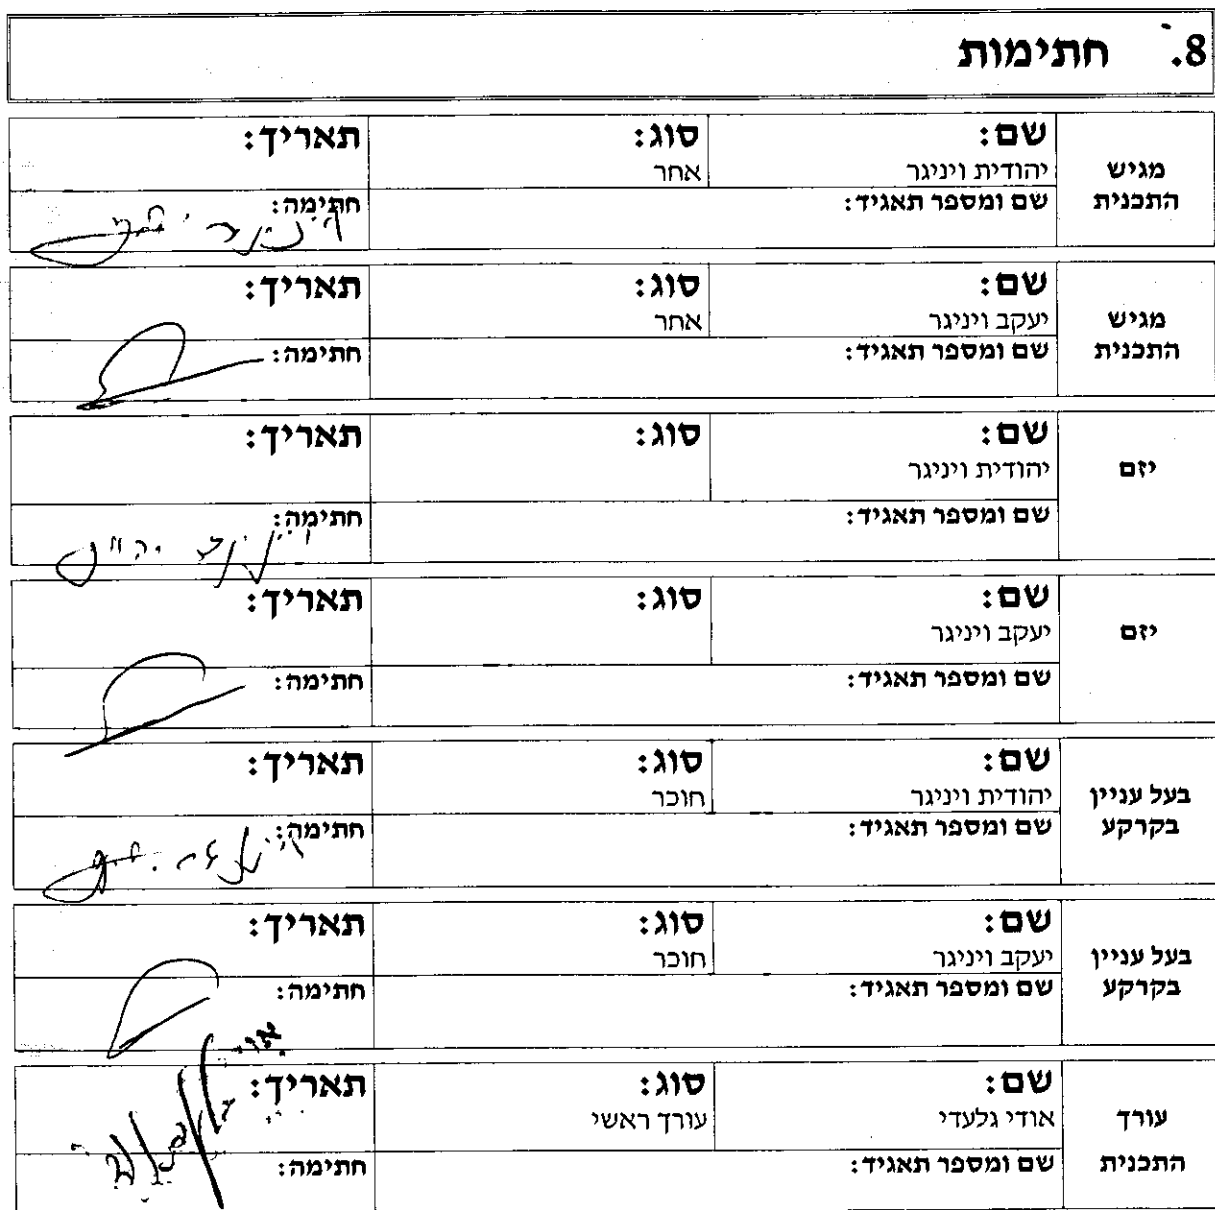 8. חתימות
מגיש התכנית
שם: יהודית ויניגר
סוג: אחר
תאריך:
שם ומספר תאגיד:
חתימה:
מגיש התכנית
שם: יעקב ויניגר
סוג: אחר
תאריך:
שם ומספר תאגיד:
חתימה:
יזם
שם: יהודית ויניגר
סוג:
תאריך:
שם ומספר תאגיד:
חתימה:
יזם
שם: יעקב ויניגר
סוג:
תאריך:
שם ומספר תאגיד:
חתימה:
בעל עניין בקרקע
שם: יהודית ויניגר
סוג: חוכר
תאריך:
שם ומספר תאגיד:
חתימה:
בעל עניין בקרקע
שם: יעקב ויניגר
סוג: חוכר
תאריך:
שם ומספר תאגיד:
חתימה:
עורך התכנית
שם: אודי גלעדי
סוג: עורך ראשי
תאריך:
שם ומספר תאגיד:
חתימה: